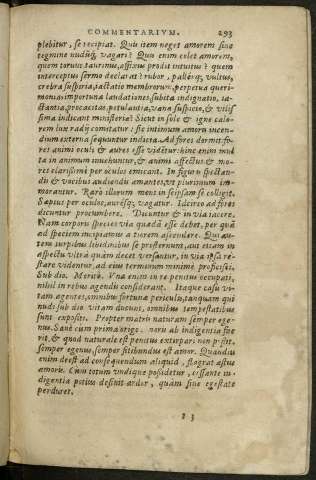 COMMENTARIVM. 293
plebitur, se recipiat. Quis item neget amorem sine
tegmine nudúq; vagari? Quis enim celet amorem,
quem toruus taurinus, affixus prodit intuitus? quem
interceptus sermo declarat? rubor, pallórq; vultus,
crebra suspiria, iactatio membrorum, perpetua queri-
monia, importuna laudationes, subita indignatio, ia-
ctantia, procacitas, petulantia, vana suspicio, & vilis
sima indicant ministeria? Sicut in sole & igne calo-
rem lux radij comitatur: sic intimum amoris incen-
dium externa sequuntur indicia. Ad fores dormit. fo-
res animi oculi & aures esse videntur. hinc enim mul
ta in animum inuehuntur, & animi affectus & mo-
res clarissimè per oculos emicant. In figuris spectan-
dis & vocibus audiendis amantes, vt plurimum im-
morantur. Rarò illorum mens in seipsam se colligit.
Sæpius per oculos, aurésq; vagatur. Idcirco ad fores
dicuntur procumbere. Dicuntur & in via iacere.
Nam corporis species via quædā esse debet, per quā
ad speciem incipiamus altiorem ascendere. Qui au-
tem turpibus libidinibus se prosternunt, aut etiam in
aspectu vltra quàm decet versantur, in via ipsa re-
stare videntur, ad eius terminum minimè proficisci.
Sub dio. Meritò. Vna enim in re penitus occupati,
nihil in rebus agendis considerant. Itaque casu vi-
tam agentes, omnibus fortunæ periculis, tanquam qui
nudi sub dio vitam ducunt, omnibus tempestatibus
sunt expositi. Propter matris naturam semper ege-
nus. Sanè cum prima origo amoris ab indigentia fue
rit, & quod naturale est penitus extirpari non possit,
semper egenus, semper sitibundus est amor. Quandiu
enim deest ad consequendum aliquid, flagrat æstus
amoris. Cum totum vndique possidetur, cessante in-
digentia potius desinit ardor, quàm sine egestate
perduret.